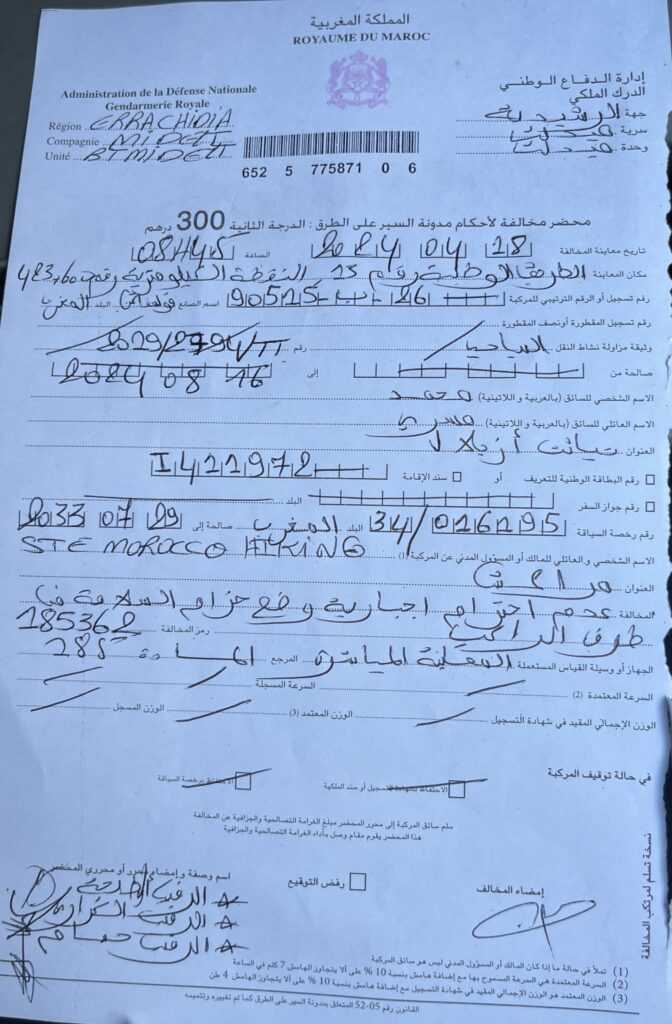 المملكة المغربية
ROYAUME DU MAROC
Administration de la Défense Nationale
Gendarmerie Royale
Région ERRACHIDIA
Compagnie MIDELT
Unité BT MIDELT
إدارة الدفاع الوطني
الدرك الملكي
جهة الرشيدية
سرية ميدلت
وحدة ميدلت
652 5 775871 0 6
محضر مخالفة لأحكام مدونة السير على الطرق : الدرجة الثانية 300 درهم
تاريخ معاينة المخالفة 18 04 2024 الساعة 08H45
مكان المعاينة الطريق الوطنية رقم 13 النقطة الكيلومترية رقم
رقم تسجيل أو الرقم الترتيبي للمركبة 26 - ب - 90515 اسم الصانع البلد المغرب
رقم تسجيل المقطورة أونصف المقطورة
وثيقة مزاولة نشاط النقل السياحي رقم
صالحة من إلى 16 08 2024
الاسم الشخصي للسائق (بالعربية و اللاتينية) محمد
الاسم العائلي للسائق (بالعربية و اللاتينية)
العنوان أزيلال
رقم البطاقة الوطنية للتعريف أو سند الإقامة I411972
رقم جواز السفر البلد
رقم رخصة السياقة 34/016295 البلد المغرب صالحة إلى 29 07 2033
الاسم الشخصي و العائلي للمالك أو المسؤول المدني عن المركبة (1) STE MOROCCO HIKING
العنوان مراكش
المخالفة عدم احترام اجبارية وضع حزام السلامة في
طرف الراكب رمز المخالفة 185362
الجهاز أو وسيلة القياس المستعملة المعاينة المباشرة المرجع المادة 185
السرعة المعتمدة (2) السرعة المسجلة
الوزن الإجمالي المقيد في شهادة التسجيل الوزن المعتمد (3) الوزن المسجل
في حالة توقيف المركبة
الاحتفاظ بشهادة التسجيل أو سند الملكية
الاحتفاظ برخصة السياقة
سلم سائق المركبة إلى محرر المحضر مبلغ الغرامة التصالحية والجزافية عن المخالفة
هذا المحضر يقوم مقام وصل بأداء الغرامة التصالحية والجزافية
نسخة تسلم لمرتكب المخالفة
إمضاء المخالف
رفض التوقيع
اسم وصفة و إمضاء محرر أو محرري المحضر
الرقيب
الرقيب
الرقيب حسام
(1) تملأ في حالة ما إذا كان المالك أو المسؤول المدني ليس هو سائق المركبة
(2) السرعة المعتمدة هي السرعة المسموح بها مع إضافة هامش بنسبة 10 % على ألا يتجاوز الهامش 7 كلم في الساعة
(3) الوزن المعتمد هو الوزن الإجمالي المقيد في شهادة التسجيل مع إضافة هامش بنسبة 10 % على ألا يتجاوز الهامش 4 طن
القانون رقم 05-52 المتعلق بمدونة السير على الطرق كما تم تغييره وتتميمه